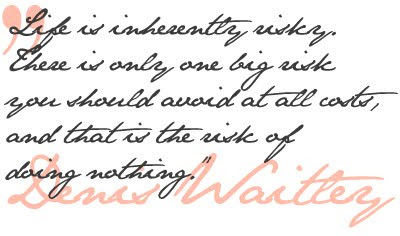 "Life is inherently risky.
There is only one big risk
you should avoid at all costs,
and that is the risk of
doing nothing."
Denis Waitley